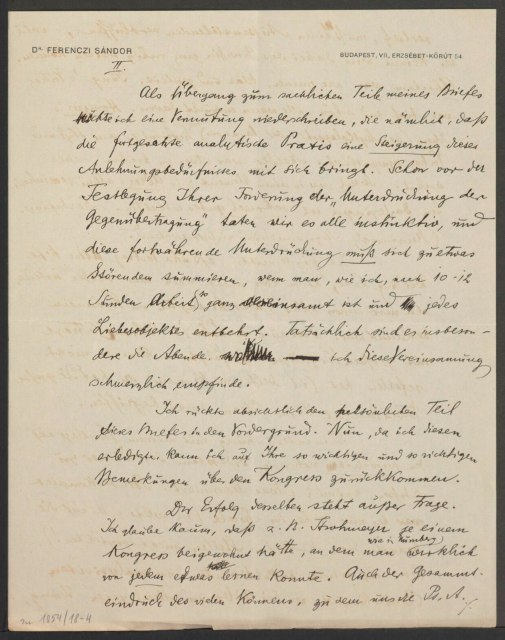 Dr. FERENCZI SÁNDOR
BUDAPEST, VII., ERZSÉBET-KÖRÚT 54
II.
Als Übergang zum sachlichen Teil meines Briefes
möchte ich eine Vermutung niederschreiben, die nämlich, daß
die fortgesetzte analytische Praxis eine Steigerung dieses
Anlehnungsbedürfnisses mit sich bringt. Schon vor der
Festlegung Ihrer Forderung der „Unterdrückung der
Gegenübertragung" taten wir es alle instinktiv, und
diese fortwährende Unterdrückung muß sich zu etwas
Störendem summieren, wenn man, wie ich, nach 10-12
Stunden Arbeit so ganz vereinsamt ist und jedes
Liebesobjektes entbehrt. Tatsächlich sind es insbeson-
dere die Abende, ich diese Vereinsamung
schmerzlich empfinde.
Ich rückte absichtlich den persönlichen Teil
dieses Briefes in den Vordergrund. Nun, da ich diesen
erledigte, kann ich auf Ihre so wichtigen und so richtigen
Bemerkungen über den Kongress zurückkommen.
Der Erfolg desselben steht außer Frage.
Ich glaube kaum, daß z. B. Strohmayer je einem
Kongress beigewohnt hätte, an dem man wie in Nürnberg wirklich
von jedem etwas lernen konnte. Auch der Gesammt-
eindruck des vielen Könnens, zu dem unsre Ps. A.
1054/18-4